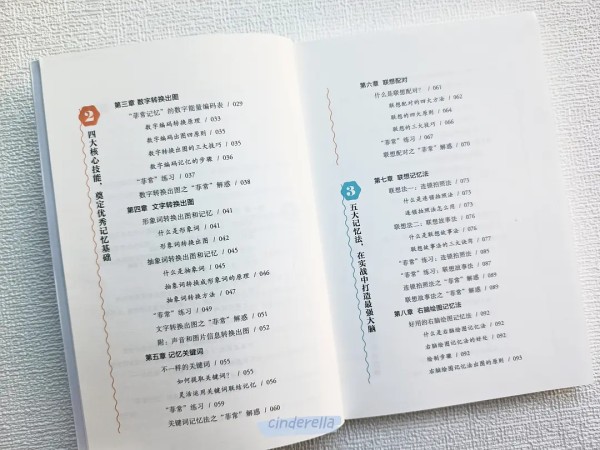 2
四大核心技能，奠定优秀记忆基础
第三章 数字转换出图
“菲常记忆”的数字能量编码表 / 029
数字编码转换原理 / 033
数字编码出图四原则 / 035
数字转换出图的三大技巧 / 035
数字编码记忆的步骤 / 036
“菲常”练习 / 037
数字转换出图之“菲常”解惑 / 038
第四章 文字转换出图
形象词转换出图和记忆 / 041
什么是形象词 / 041
形象词转换出图 / 042
抽象词转换出图和记忆 / 045
什么是抽象词 / 045
抽象词转换成形象词的原理 / 046
抽象词转换方法 / 047
“菲常”练习 / 049
文字转换出图之“菲常”解惑 / 051
附：声音和图片信息转换出图 / 052
第五章 记忆关键词
不一样的关键词 / 055
如何提取关键词？ / 055
灵活运用关键词联结记忆 / 056
“菲常”练习 / 059
关键词记忆法之“菲常”解惑 / 060
第六章 联想配对
什么是联想配对？ / 061
联想配对的四大方法 / 062
联想的四大原则 / 062
联想的三大技巧 / 066
“菲常”练习 / 067
联想配对之“菲常”解惑 / 070
3
五大记忆法，在实战中打造最强大脑
第七章 联想记忆法
联想法一：连锁拍照法 / 073
什么是连锁拍照法 / 073
连锁拍照法怎么用 / 073
联想法二：联想故事法 / 076
什么是联想故事法 / 076
联想故事法的三大法存 / 077
“菲常”练习：连锁拍照法 / 085
“菲常”练习：联想故事法 / 087
连锁拍照法之“菲常”解惑 / 089
联想故事法之“菲常”解惑 / 089
第八章 右脑绘图记忆法
好用的右脑绘图记忆法 / 092
什么是右脑绘图记忆法 / 092
右脑绘图记忆法的好处 / 092
绘制步骤 / 092
右脑绘图记忆法出图的原则 / 093
cinderella